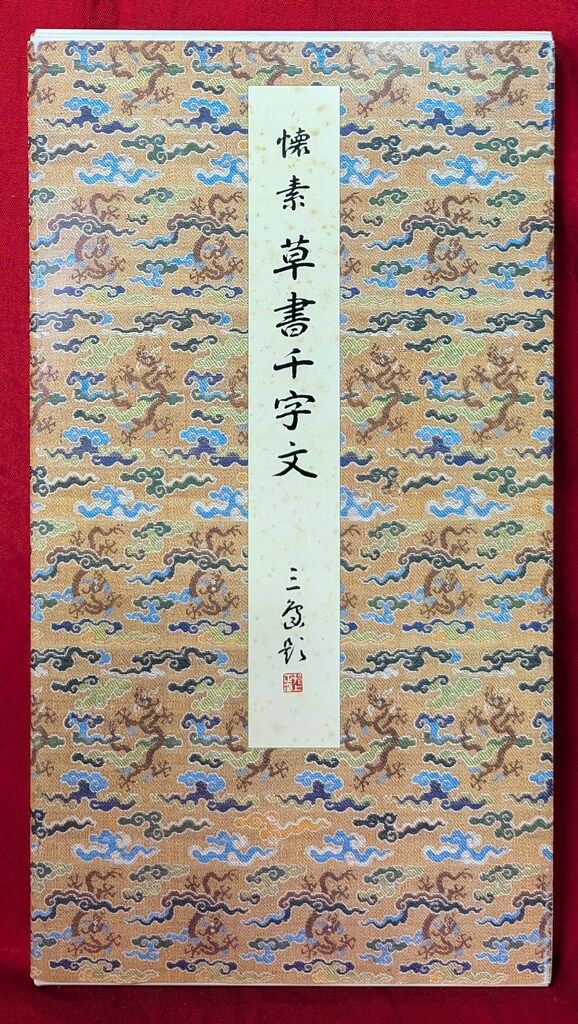 懐素 草書千字文 三島題